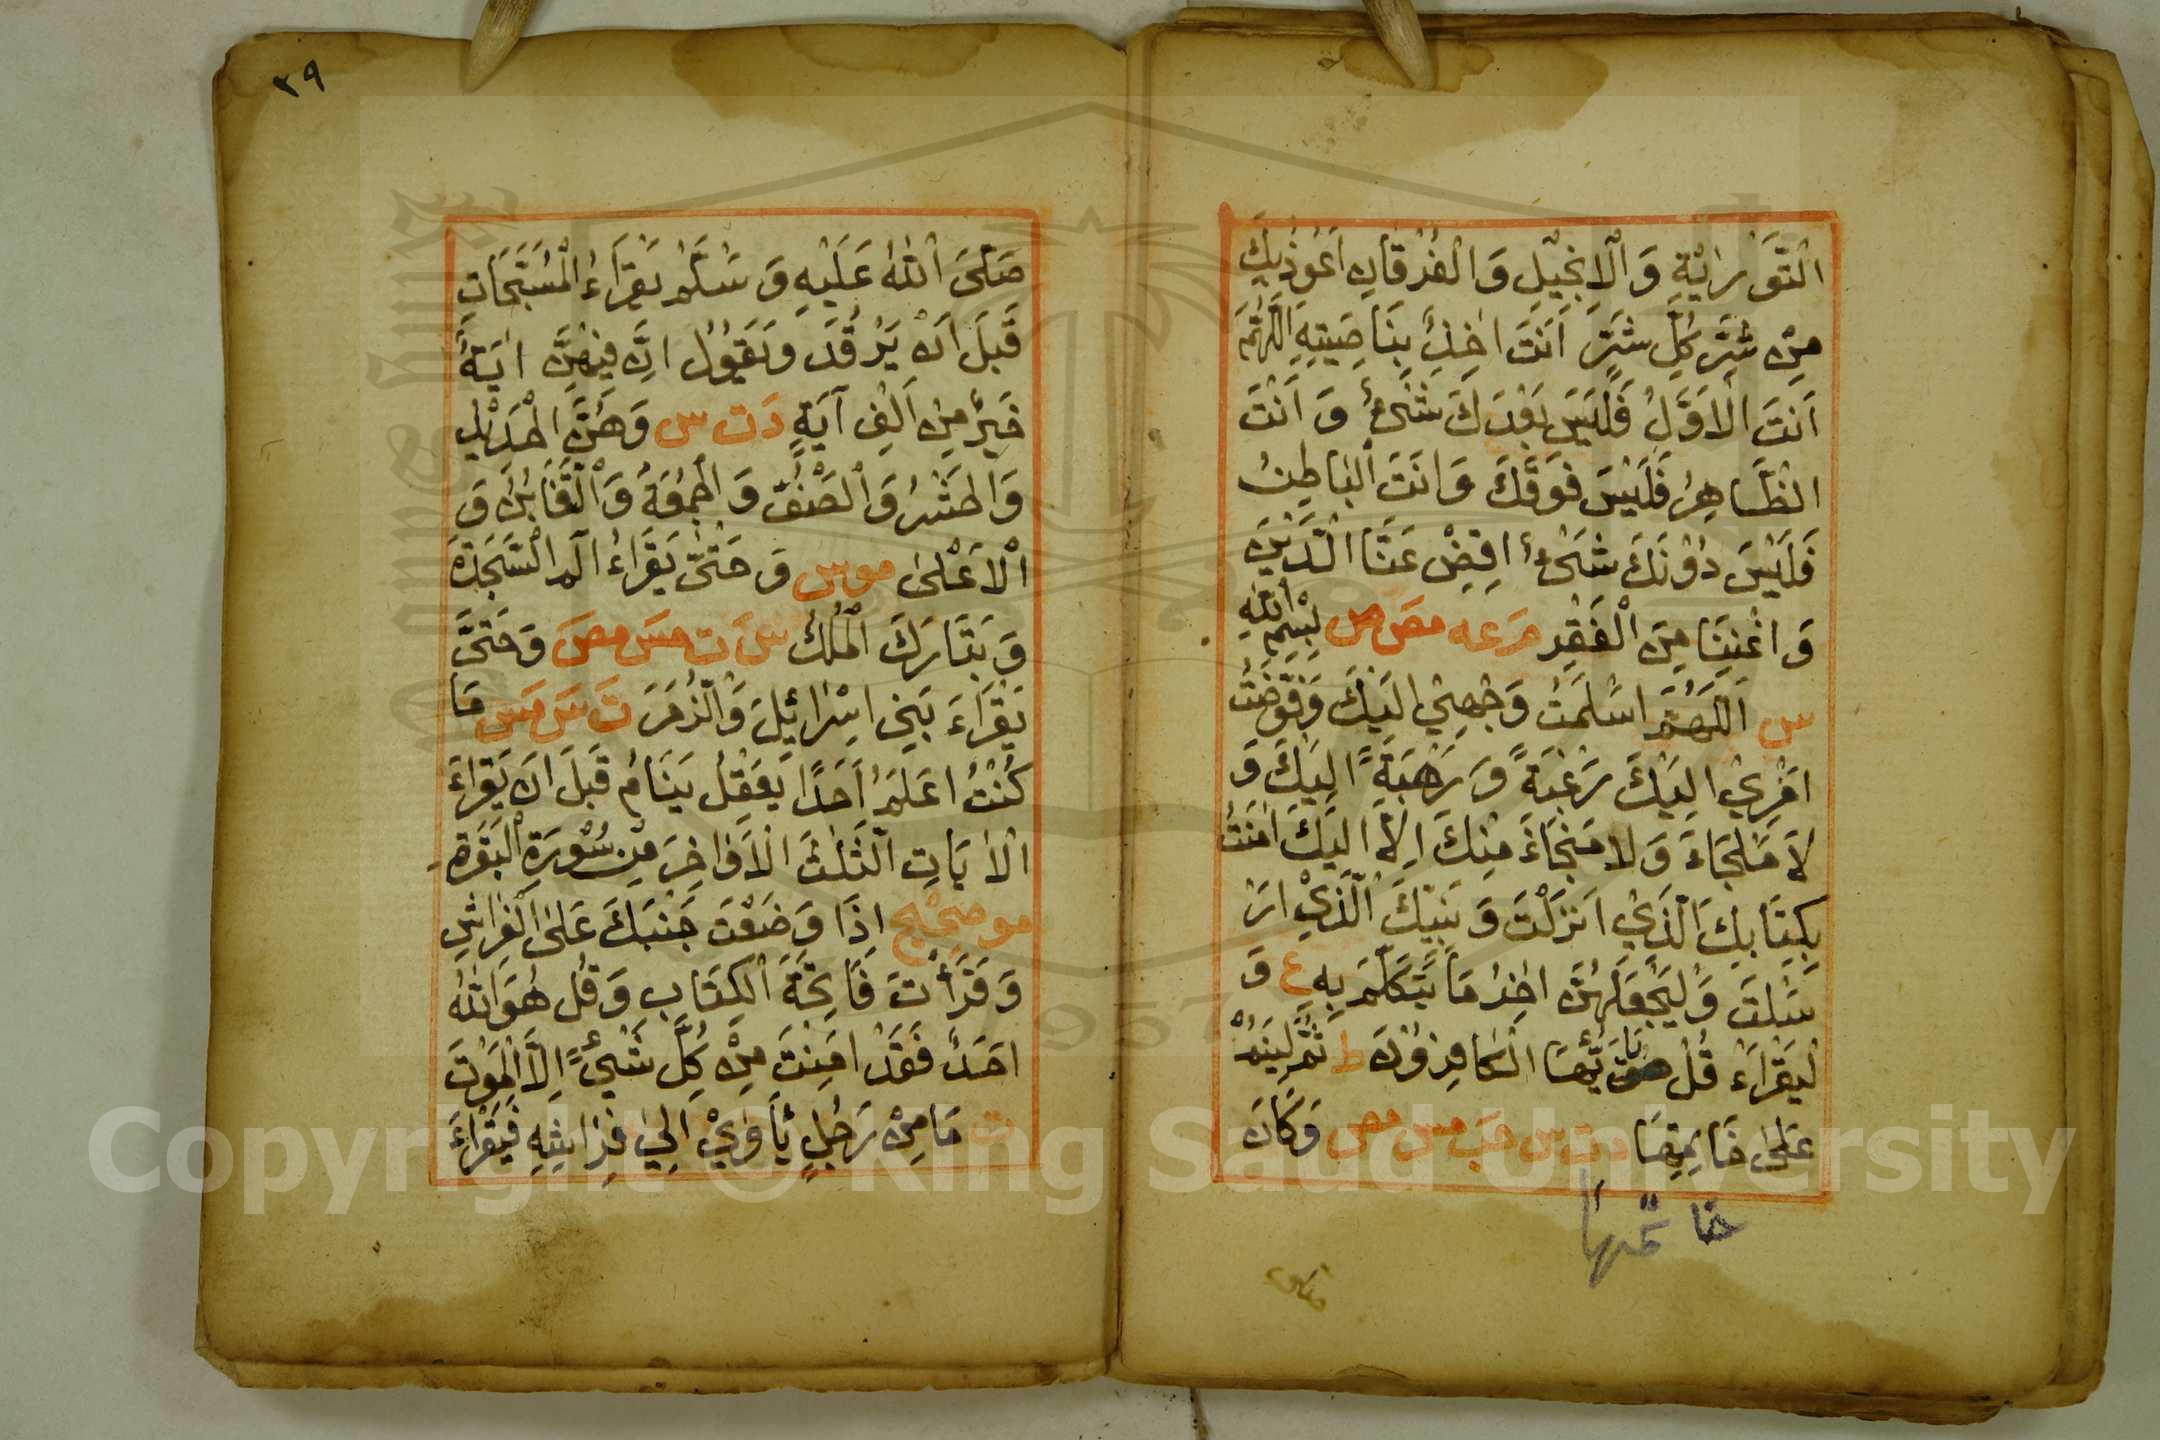 التَّوْرَايةِ وَالْاِنْجِيْلِ وَالْفُرْقَانِ اَعُوْذُ بِكَ
مِنْ شَرِّ كُلِّ شَيْءٍ اَنْتَ اٰخِذٌ بِنَاصِيَتِهِ اَللّٰهُمَّ
اَنْتَ الْاَوَّلُ فَلَيْسَ بَعْدَكَ شَيْءٌ وَ اَنْتَ
الظَّاهِرُ فَلَيْسَ فَوْقَكَ وَ اَنْتَ الْبَاطِنُ
فَلَيْسَ دُوْنَكَ شَيْءٌ اِقْضِ عَنَّا الدَّيْنَ
وَ اغْنِنَا مِنَ الْفَقْرِ مَ عه مص ص بِسْمِ اللّٰهِ
س اَللّٰهُمَّ اَسْلَمْتُ وَجْهِيْ اِلَيْكَ وَفَوَّضْتُ
اَمْرِيْ اِلَيْكَ رَغْبَةً وَ رَهْبَةً اِلَيْكَ وَ
لَا مَلْجَاءَ وَ لَا مَنْجَاءَ مِنْكَ اِلَّا اِلَيْكَ اٰمَنْتُ
بِكِتَابِكَ الَّذِيْ اَنْزَلْتَ وَ نَبِيِّكَ الَّذِيْ اَرْ
سَلْتَ وَ لْيَجْعَلْهُنَّ اٰخِرُ مَا يَتَكَلَّمَ بِهِ ع وَ
لْيَقْرَاءْ قُلْ يَا اَيُّهَا الْكَافِرُوْنَ ط ثُمَّ لْيَنَمْ
عَلٰى خَاتِمَتِهَا دت س حب مس مص وَكَانَ
خاتمتها
٣٩
صَلَّى اللّٰهُ عَلَيْهِ وَ سَلَّمَ يَقْرَاءُ الْمُسَبِّحَاتِ
قَبْلَ اَنْ يَرْقُدَ وَ يَقُوْلُ اِنَّ فِيْهِنَّ اٰيَةً
خَيْرٌ مِنْ اَلْفِ آيَةٍ دَ ت س وَ هُنَّ الْحَدِيْدُ
وَ الْحَشْرُ وَ الصَّفُّ وَ الْجُمُعَةُ وَ التَّغَابُنُ وَ
الْاَعْلٰى مو س وَ حَتّٰى يَقْرَاءُ الٓمٓ السَّجْدَةَ
وَ تَبَارَكَ الْمُلْكُ س ت مس مص وَ حَتّٰى
يَقْرَاءَ بَنِي اِسْرَائِيْلَ وَ الزُّمَرَ ت س مس مَا
كُنْتُ اَعْلَمُ اَحَدًا يَعْقِلُ يَنَامُ قَبْلَ اَنْ يَقْرَاءَ
الْاٰيَاتِ الثَّلٰثَ الْاَوَاخِرَ مِنْ سُوْرَةِ الْبَقَرَةِ
مو صحيح اِذَا وَضَعْتَ جَنْبَكَ عَلَى الْفِرَاشِ
وَ قَرَأْتَ فَاتِحَةَ الْكِتَابِ وَ قُلْ هُوَ اللّٰهُ
اَحَدٌ فَقَدْ اَمِنْتَ مِنْ كُلِّ شَيْءٍ اِلَّا الْمَوْتَ
ت مَا مِنْ رَجُلٍ يَأْوِيْ اِلٰى فِرَاشِهِ فَيَقْرَاءَ